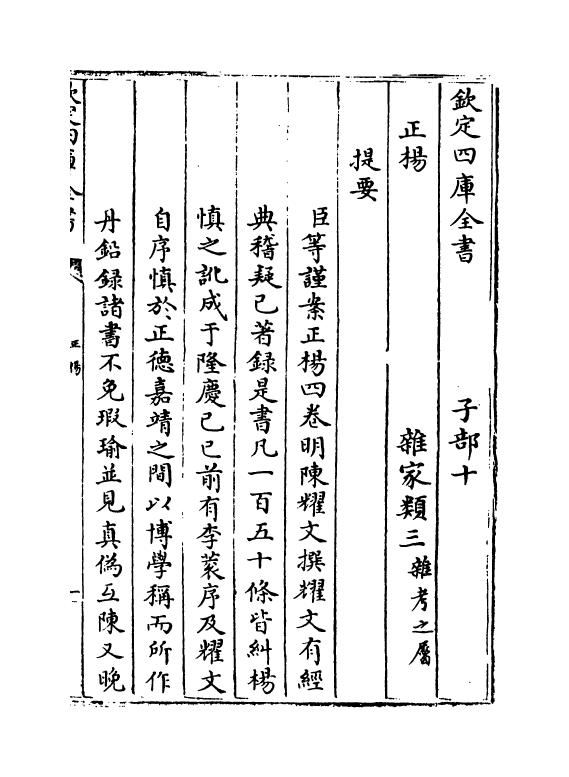 欽定四庫全書　子部十
正楊　雜家類三雜考之屬
提要
臣等謹案正楊四卷明陳耀文撰耀文有經
典稽疑已著録是書凡一百五十條皆糾楊
慎之訛成于隆慶己巳前有李蓘序及耀文
自序慎於正徳嘉靖之間以博學稱而所作
丹鉛録諸書不免瑕瑜並見真偽互陳又晚
欽定四庫全書
正楊
一